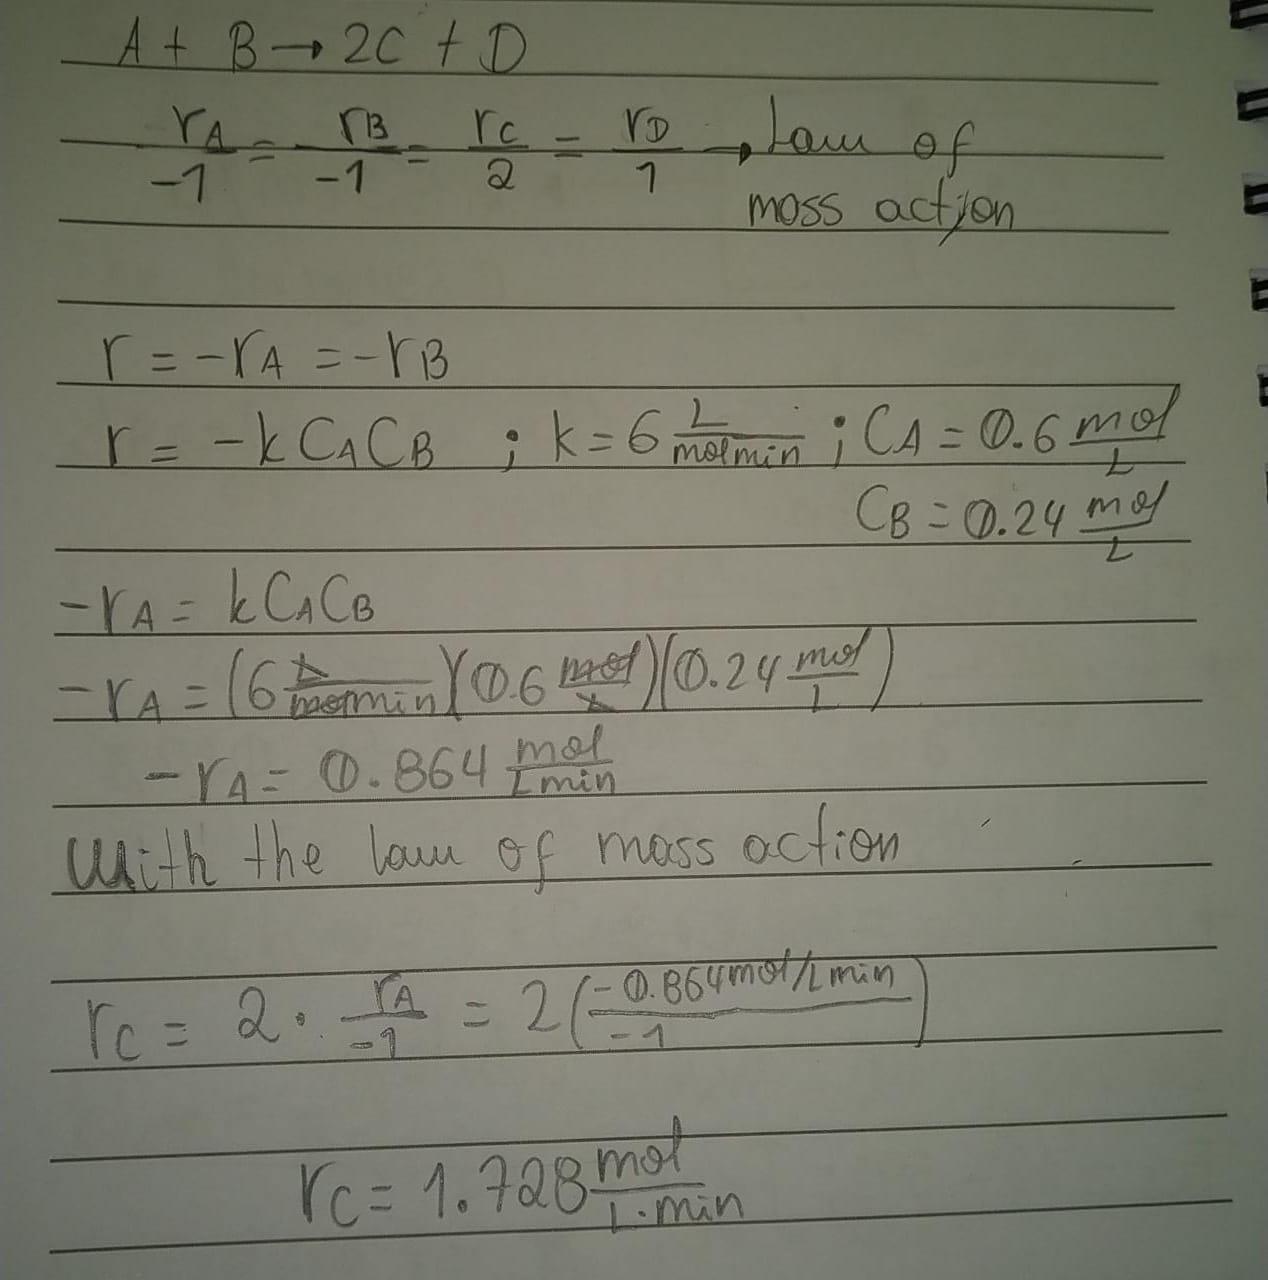 A + B → 2C + D
rA/-1 = rB/-1 = rC/2 = rD/1 → Law of
mass action
r = -rA = -rB
r = -kCACB ; k = 6 L/mol min ; CA = 0.6 mol/L
CB = 0.24 mol/L
-rA = kCACB
-rA = (6 L/mol min)(0.6 mol/L)(0.24 mol/L)
-rA = 0.864 mol/L min
With the law of mass action
rC = 2 · rA/-1 = 2(-0.864 mol/L min/-1)
rC = 1.728 mol/L·min